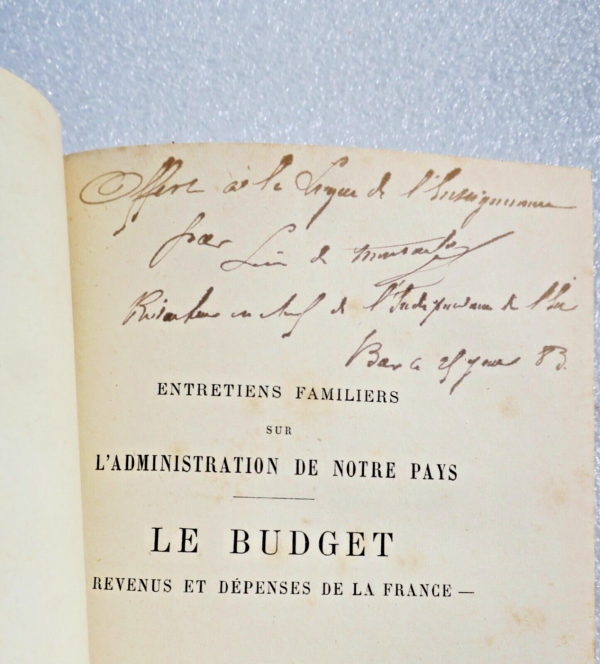 Offert à la Ligue de l'Enseignement
par
de
Rédacteur en chef de l'Indépendance de l'Est
Bar 83.
ENTRETIENS FAMILIERS
SUR
L'ADMINISTRATION DE NOTRE PAYS
LE BUDGET
REVENUS ET DÉPENSES DE LA FRANCE —